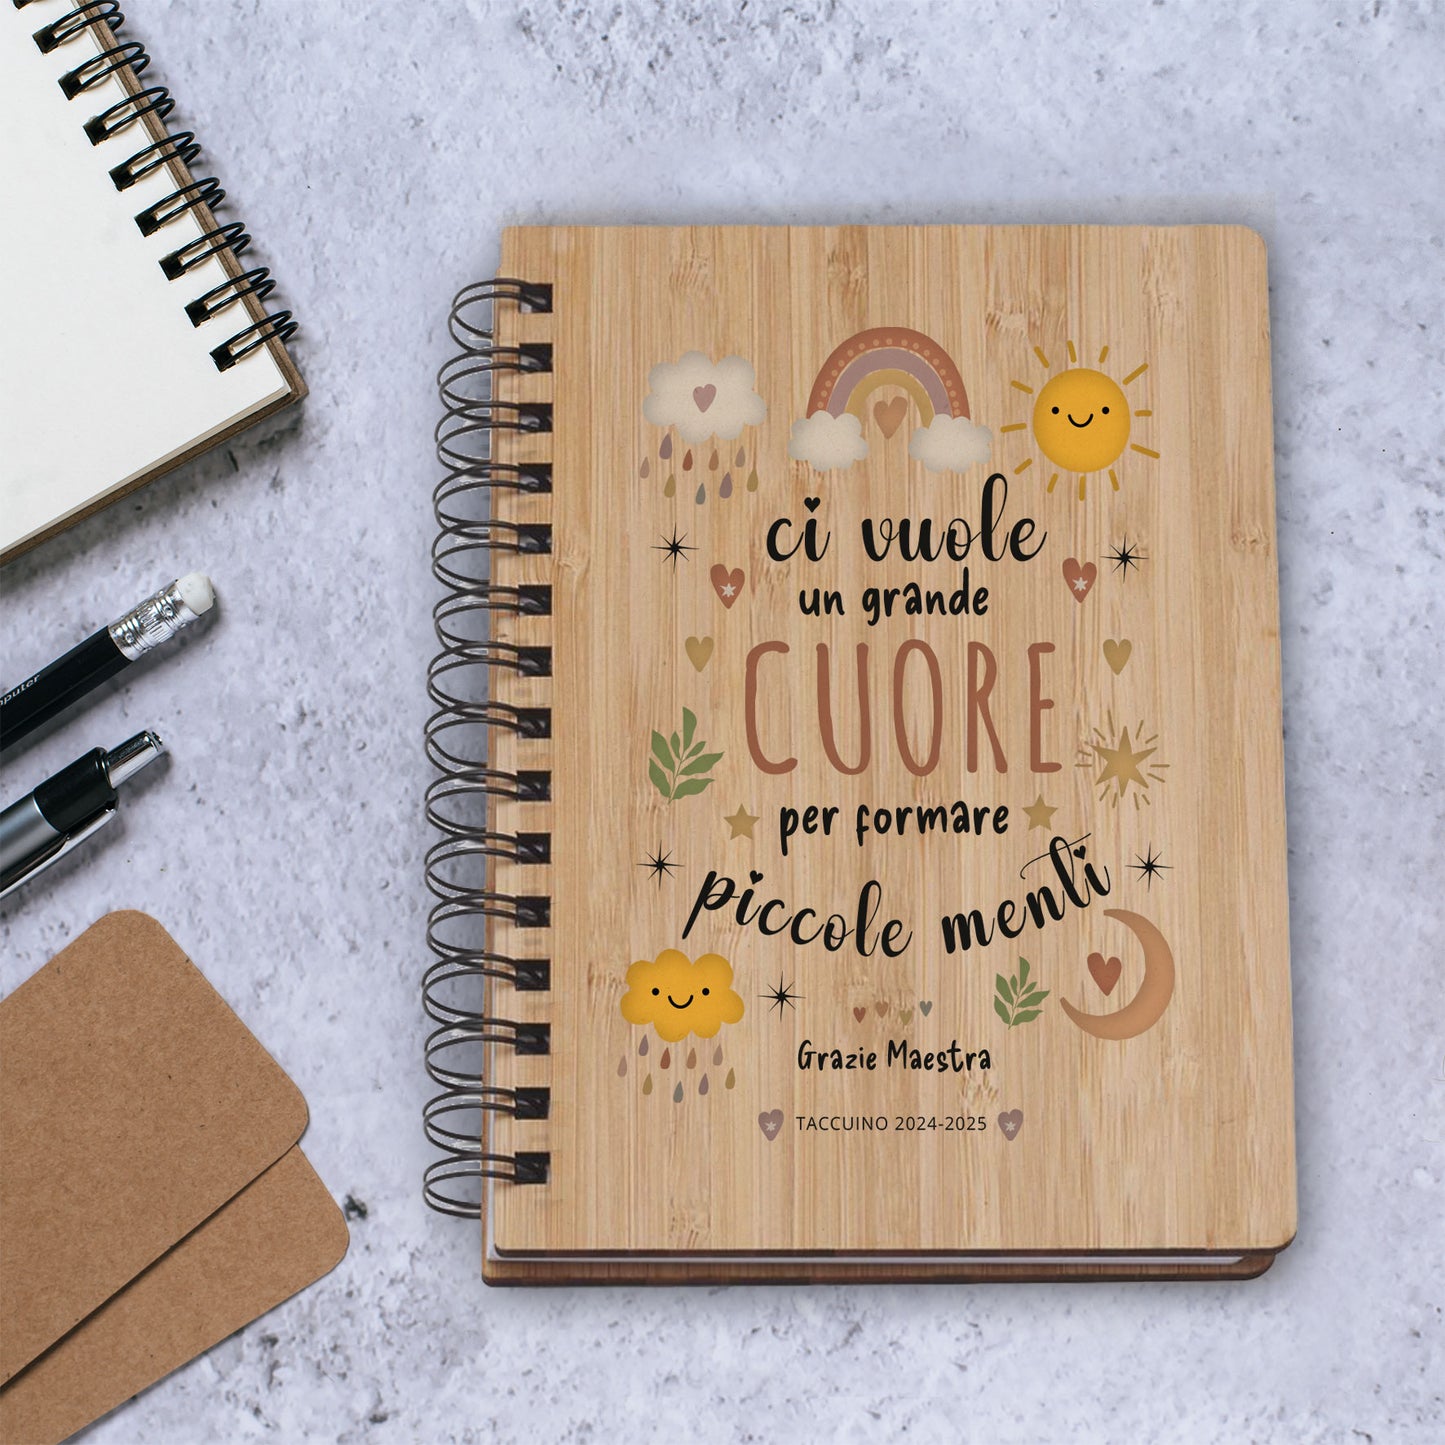 ci vuole
un grande
CUORE
per formare
piccole menti
Grazie Maestra
TACCUINO 2024-2025